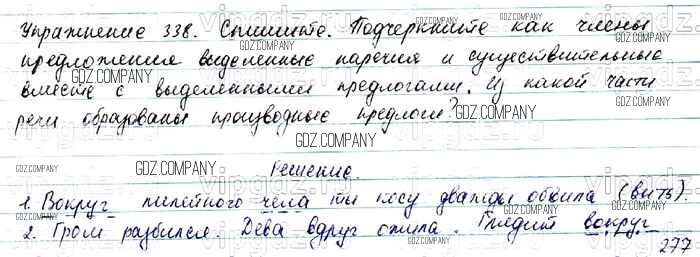 Упражнение 338. Спишите. Подчеркните как члены
предложения выделенные наречия и существительные
вместе с выделенными предлогами. Из какой части
речи образованы производные предлоги?
GDZ.COMPANY
Решение.
1. Вокруг лилейного чела ты косу дважды обвила (вить).
2. Гром разбился. Дева вдруг ожила. Глядит вокруг
277